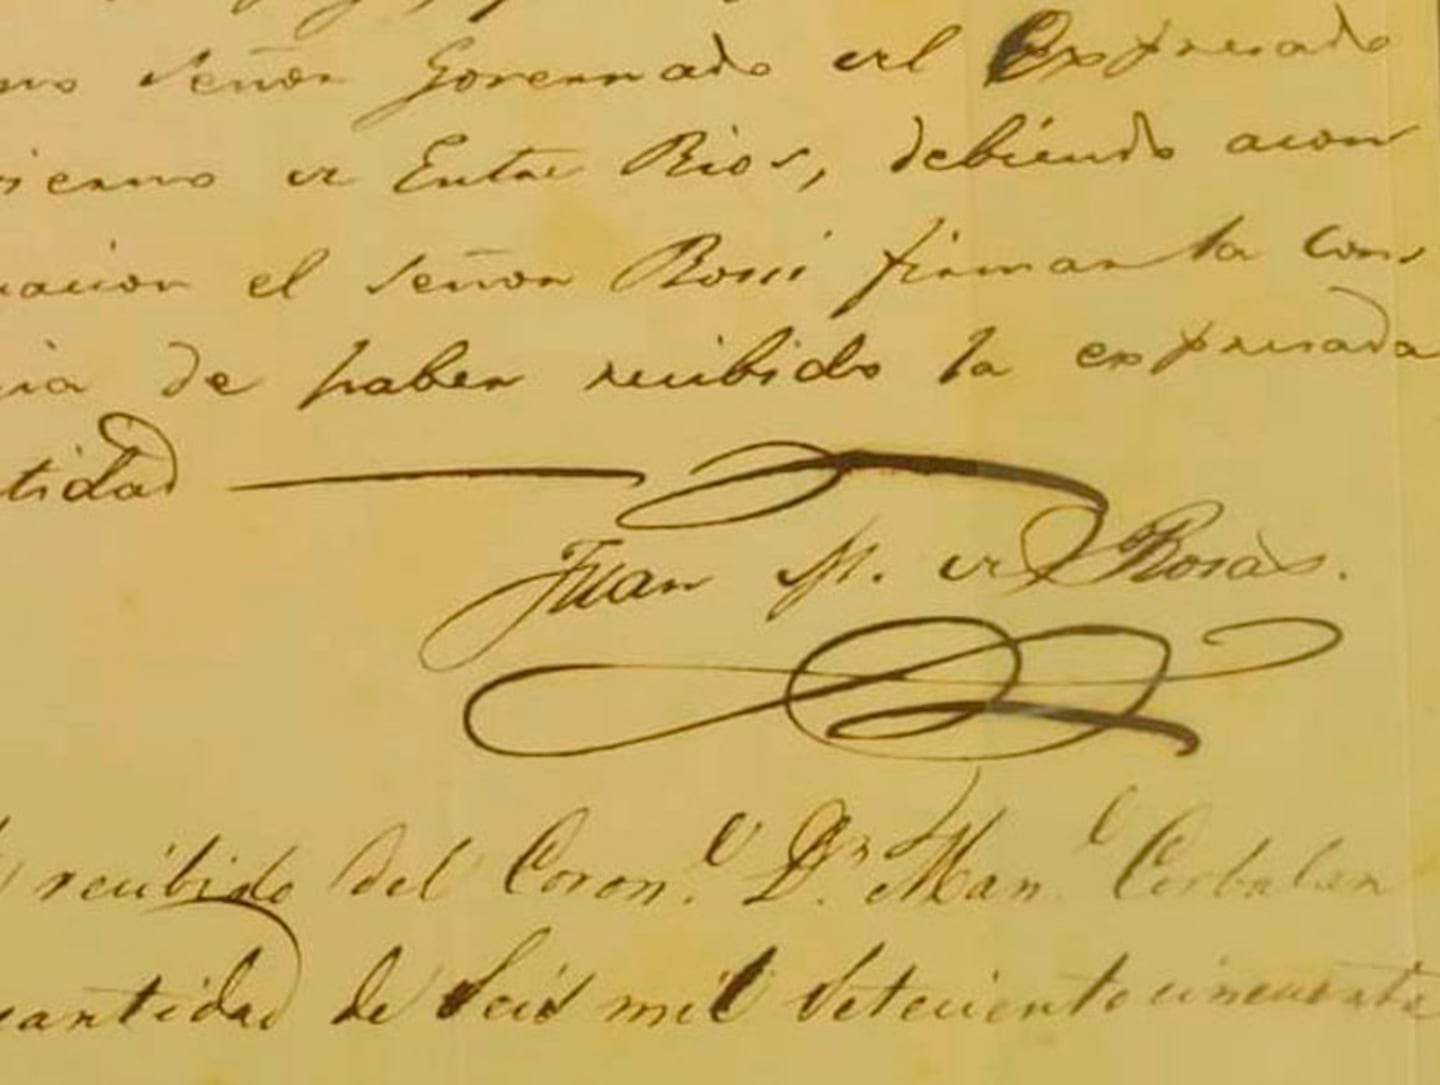 mo señor Governado del Expresado
vierno de Entre Rios, debiendo acon
uacion el señor Rossi firmar la cons
cia de haber recibido la expresada
tidad
Juan M. de Rosas.
recibido del Coron.l D.n Man.l Corbalan
cantidad de Seis mil Setecientocincuenta